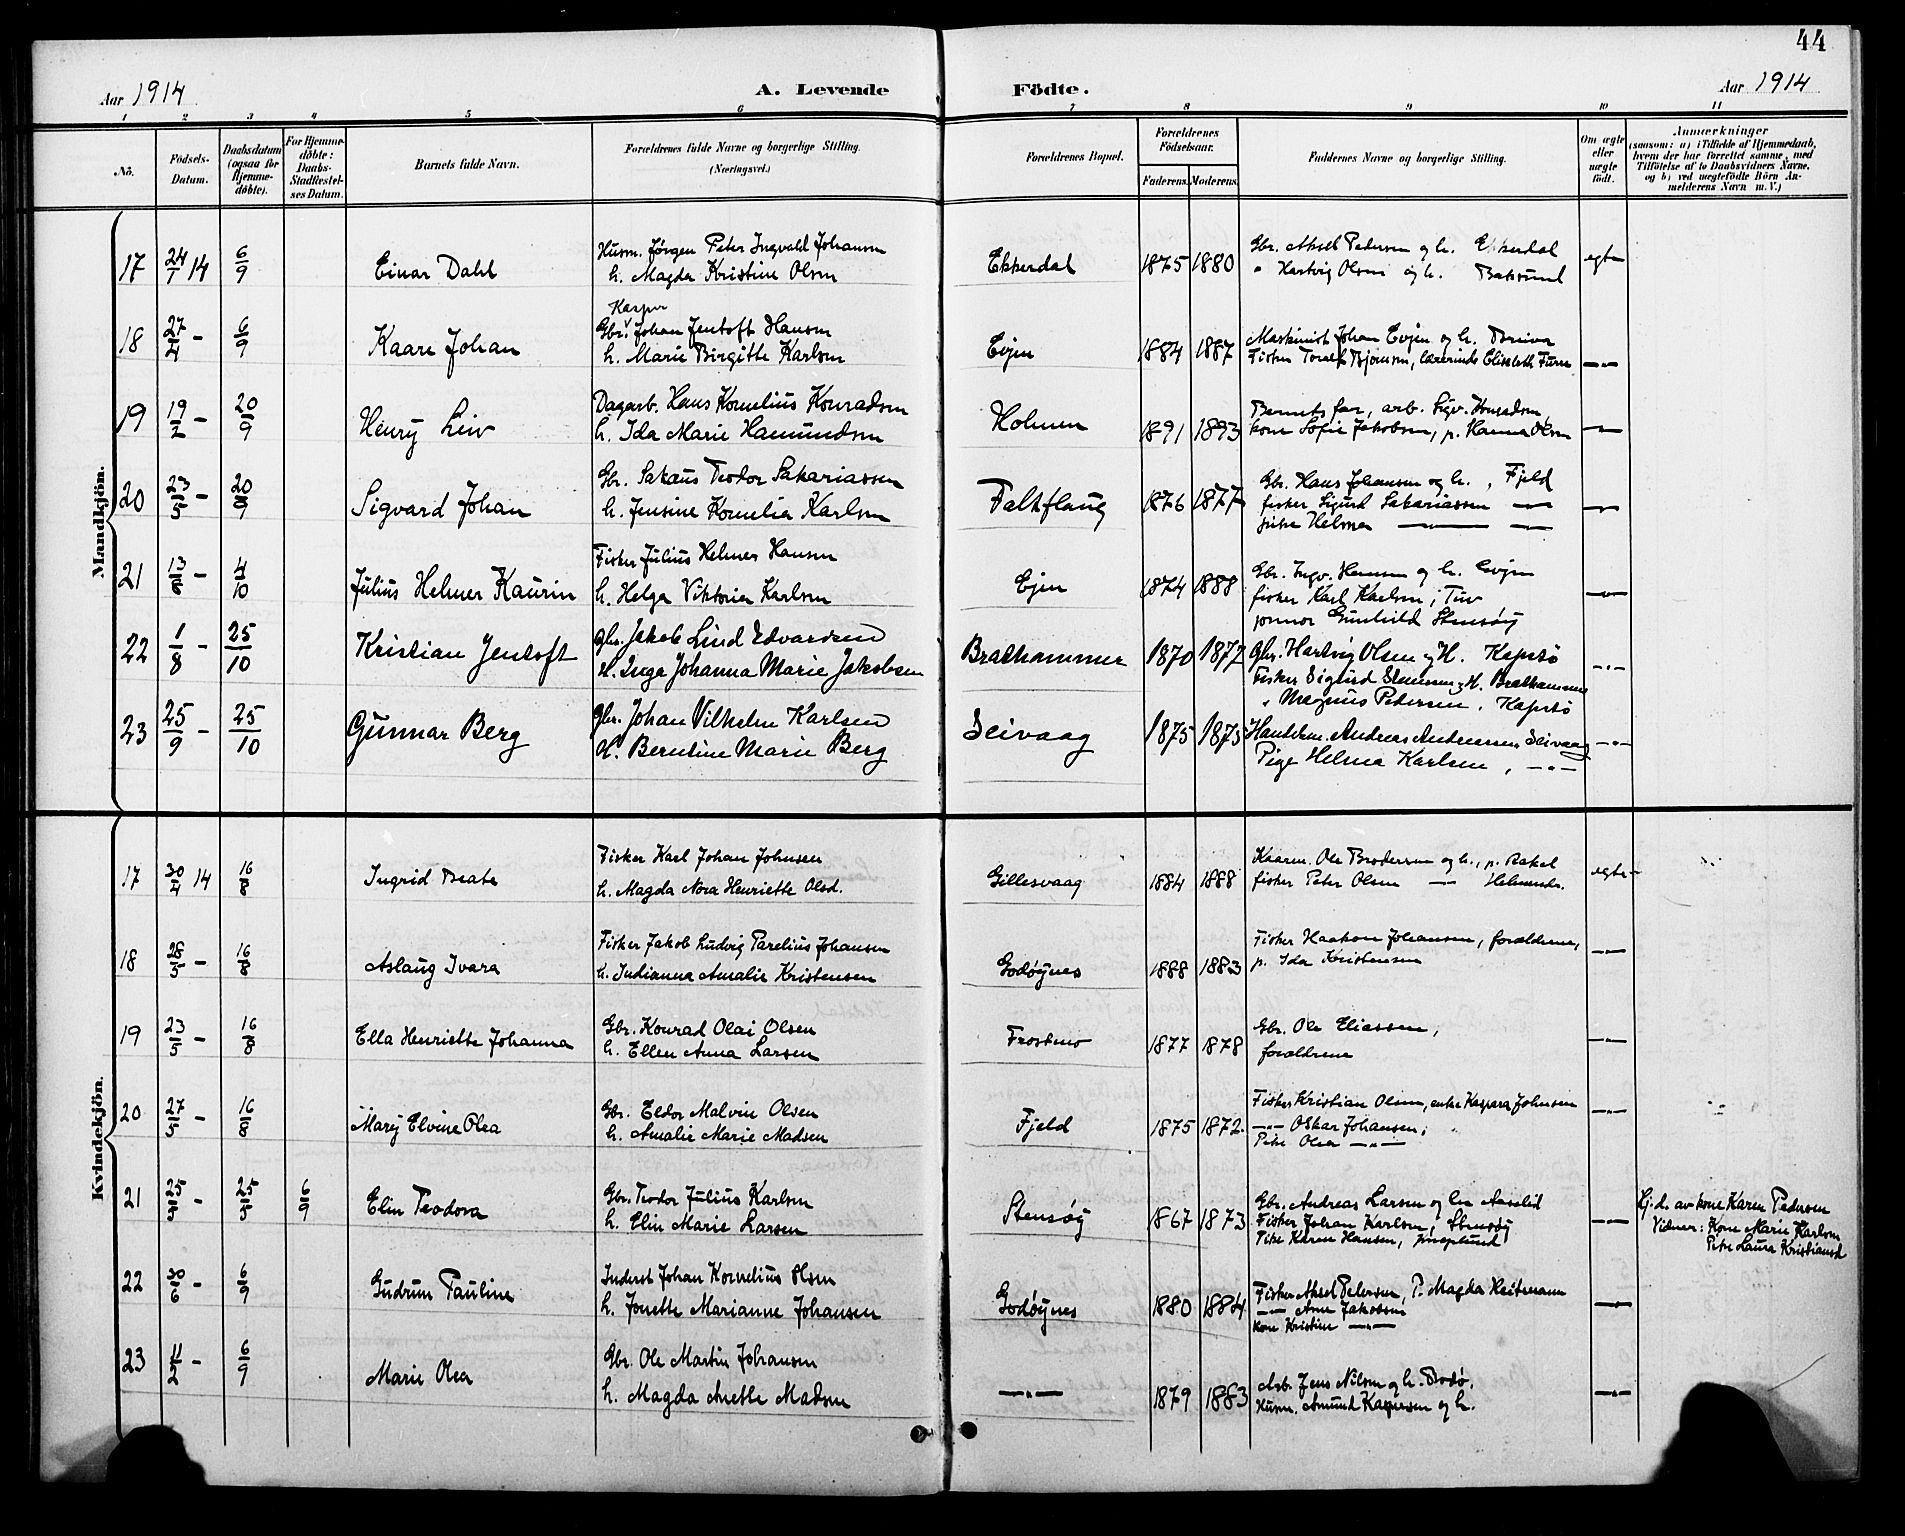 44
Aar 1914 A. Levende Födte. Aar 1914
1 2 3 4 5 6 7 8 9 10 11
No. Födsels-Datum. Daabsdatum (ogsaa for Hjemmedöbte). For Hjemmedöbte: Daabs-Stadfæstelses Datum. Barnets fulde Navn. Forældrenes fulde Navne og borgerlige Stilling. (Næringsvei.) Forældrenes Bopæl. Forældrenes Födselsaar. Faderens. Moderens. Faddernes Navne og borgerlige Stilling. Om ægte eller uægte födt. Anmærkninger (saasom: a) i Tilfælde af Hjemmedaab, hvem der har forrettet samme, med Tilföielse af Daabsvidners Navne, og b) ved uægtefödte Börn Anmelderens Navn m. V.)
Mandkjön.
Husm. Jørgen Peter Ingvald Johansen Gbr. Aksel Pedersen og h. Ekkerdal
17 24/7 14 6/9 Einar Dahl h. Magda Kristine Olsen Ekkerdal 1875 1880 " Hartvig Olsen og h. Baksund egte
Kaspar
Gbr. Johan Jentoft Hansen Maskinist Johan Evjen og h.
18 27/4 - 6/9 Kaare Johan h. Marie Birgitte Karlsen Evjen 1884 1887 Fisker Toralf Bjørnsen, lærerinde Elisabeth -"-
Dagarb. Hans Kornelius Konradsen Barnets far, arb. Sigv. Konradsen,
19 19/2 - 20/9 Henry Liv h. Ida Marie Hamundsen Holmen 1891 1893 kone Sofie Jakobsen, p. Hanna Olsen -"-
Gbr. Sakaus Teodor Sakariassen Gbr. Hans Johansen og h., Fjeld
20 23/5 - 20/9 Sigvard Johan h. Jensine Kornelia Karlsen Falkflaug 1876 1877 fisker Sigurd Sakariassen -"- -"-
pike Helmer -"- -"-
Fisker Julius Helmer Hansen Gbr. Ingv. Hansen og h. Evjen
21 13/6 - 4/10 Julius Helmer Kaurin h. Helga Viktoria Karlsen Ejen 1874 1888 fisker Karl Karlsen, Tuv -"-
Gunhild Stensøy
22 1/8 - 25/10 Kristian Jentoft Gbr. Jakob Lind Edvardsen Brathammer 1870 1872 Gbr. Hartvig Olsen og H. Kapstø -"-
H. Inga Johanna Marie Jakobsen Fisker Sigurd Hansen og H. Brathammer
" Magnus Pedersen, Kapstø
23 25/9 - 25/10 Gunnar Berg Gbr. Johan Vilhelm Karlsen Seivaag 1875 1875 Handelsm. Andreas Andreassen, Seivaag -"-
H. Berntine Marie Berg Pige Helma Karlsen, -"-
Kvindekjön.
Fisker Karl Johan Johnsen Kaarm. Ole Brodersen og h., p. Rakel
17 30/4 14 16/8 Ingrid Beate h. Magda Nora Henriette Olsd. Gillesvaag 1884 1888 fisker Peter Olsen — egte
Fisker Jakob Ludvig Parelius Johansen Fisker Haakon Johansen, forældrene,
18 28/5 - 16/8 Aslaug Ivara h. Indianna Amalie Kristensen Godøynes 1888 1883 p. Ida Kristensen -"-
Gbr. Konrad Olai Olsen Gbr. Ole Eliassen,
19 23/5 - 16/8 Ella Henriette Johanna h. Ellen Anna Larsen Frostmo 1877 1878 forældrene -"-
Gbr. Eldor Malvin Olsen Fisker Kristian Olsen, enke Kaspara Johnsen
20 27/5 - 16/8 Mary Elvine Olea h. Amalie Marie Madsen Fjeld 1875 1872 -"- Oskar Johansen, -"-
Pike Olea -"-
Gbr. Teodor Julius Karlsen Gbr. Andreas Larsen og h. Aaselid Hj. d. av kone Karen Pedersen
21 25/5 - 25/5 6/9 Elin Teodora h. Elin Marie Larsen Stensøy 1867 1873 Fisker Johan Karlsen, Stensøy -"- Vidner: Kone Marie Karlsen
Pike Karen Hansen, Pike Laura Kristiansd
Inderst Johan Kornelius Olsen Fisker Aksel Petersen, P. Magda Heitmann
22 30/6 - 6/9 Gudrun Pauline h. Jonette Marianne Johansen Godøynes 1880 1884 -"- Arne Jakobsen -"-
kone Kristine -"-
Gbr. Ole Martin Johansen Arb. Jens Nilsen og h. Bodø.
23 11/2 - 6/9 Marie Olea h. Magda Anette Madsen -"- 1879 1883 Husm. Amund Kaspersen og h. -"-